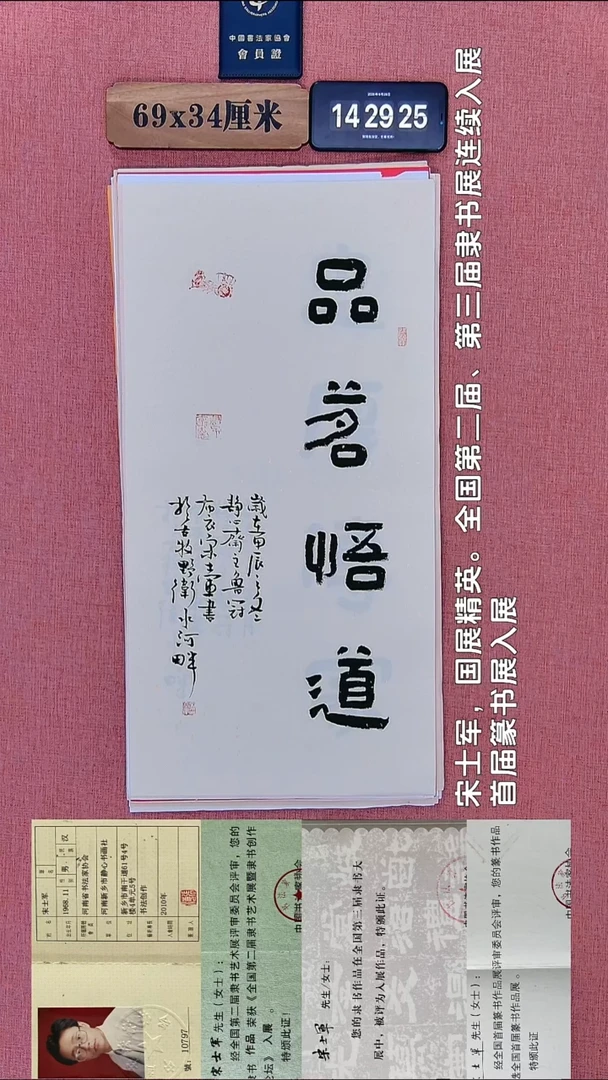 中國書法家協會
會員證
69x34厘米
14 29 25
品茗悟道
歲在甲辰之
静心齋主
布衣宋士軍書
於古牧野衛水河畔
宋士军，国展精英。全国第二届、第三届隶书展连续入展
首届篆书展入展
宋士军
男
汉
1968.11
河南省书法家协会
河南新乡市静心书画社
新乡市南干道61号4号
楼4单元5号
书法创作
2010年
號：10797
宋士军 先生（女士）：
经全国第二届隶书艺术展评审委员会评审，您的
隶书 作品 荣获《全国第二届隶书艺术展暨隶书创作
论坛》 入展 。
特颁此证！
宋士军 先生/女士：
您的隶书作品在全国第三届隶书大
展中，被评为入展作品，特颁此证。
士军 先生（女士）：
经全国首届篆书作品展评审委员会评审，您的篆书作品
全国首届篆书作品展。
特颁此证